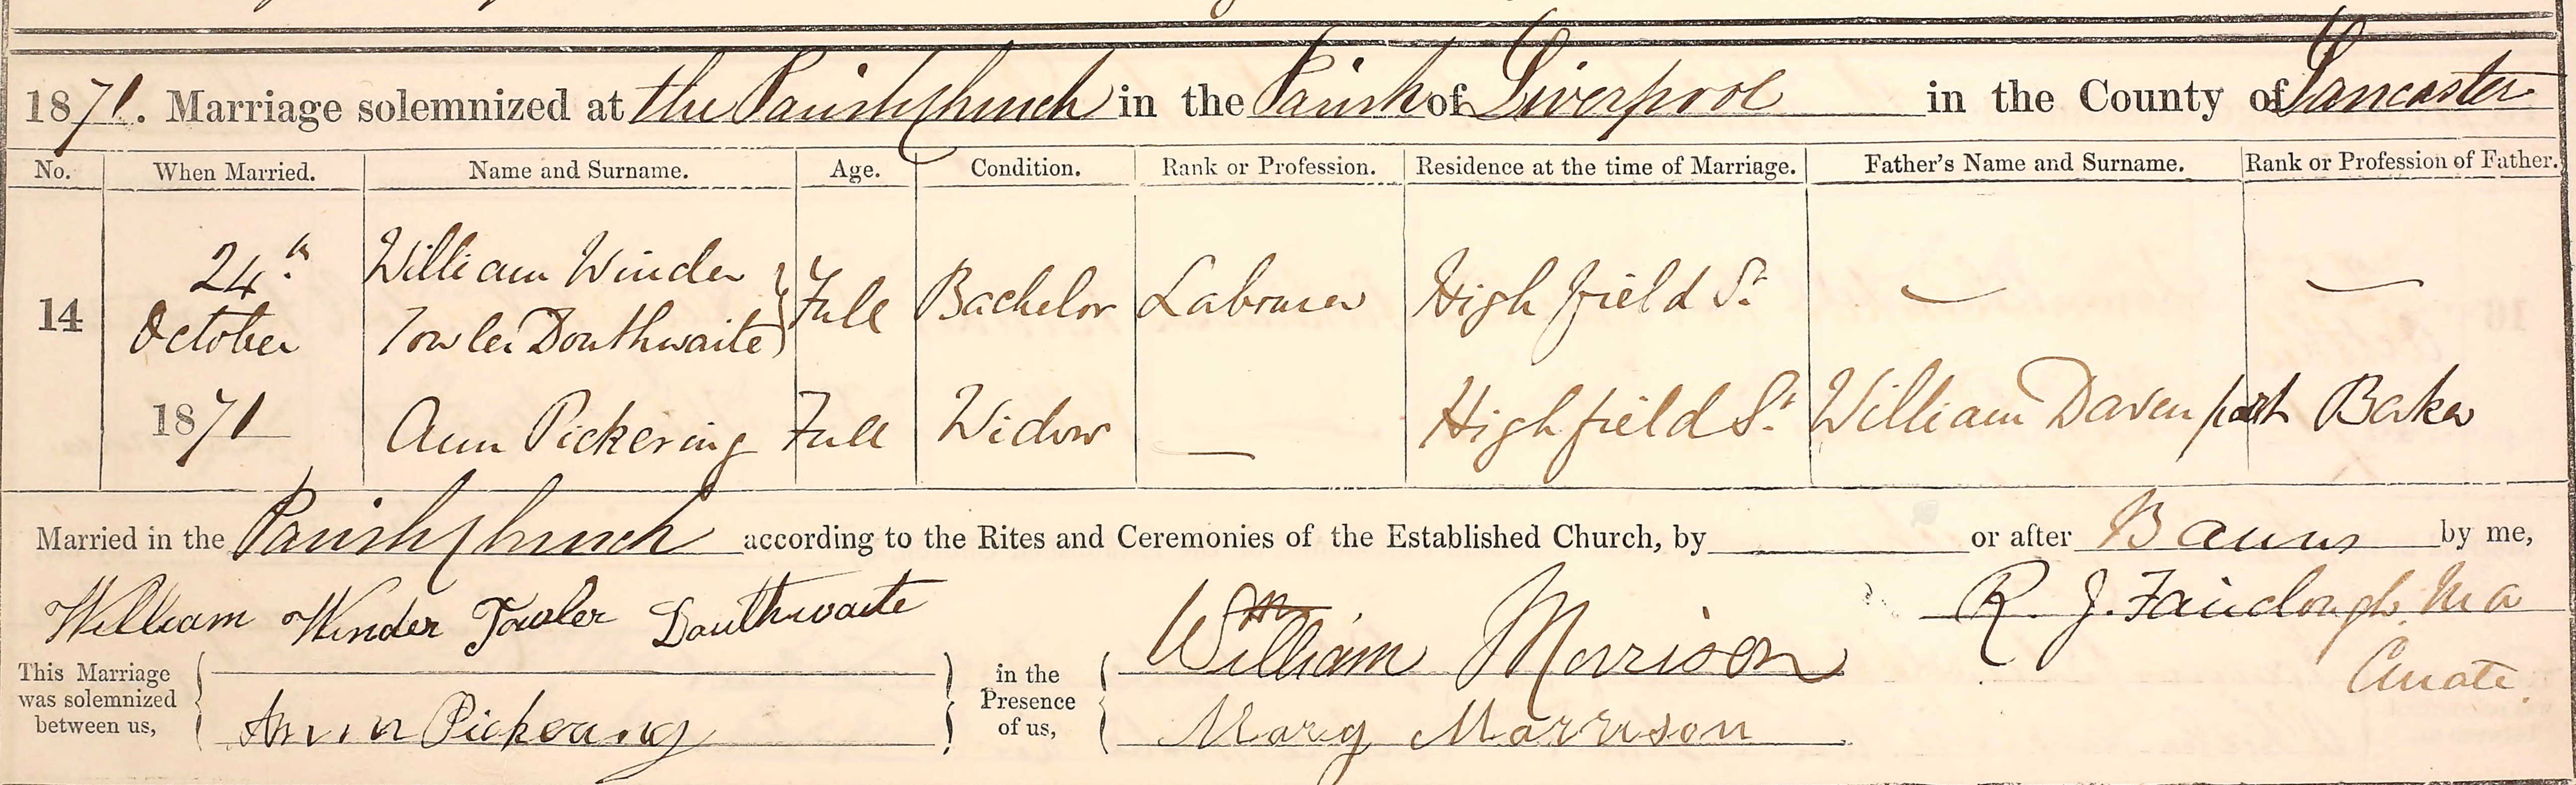 1871. Marriage solemnized at the Parish Church in the Parish of Liverpool in the County of Lancaster
No. When Married. Name and Surname. Age. Condition. Rank or Profession. Residence at the time of Marriage. Father's Name and Surname. Rank or Profession of Father.
14 24th October 1871 William Winder Towler Douthwaite } Full Bachelor Labourer High field St. — —
Ann Pickering Full Widow — Highfield St. William Davenport Baker
Married in the Parish Church according to the Rites and Ceremonies of the Established Church, by or after Banns by me,
William Winder Towler Douthwaite William Morrison R. J. Fairclough, M A
This Marriage was solemnized between us, { } in the Presence of us, { Curate.
Ann Pickering Mary Morrison